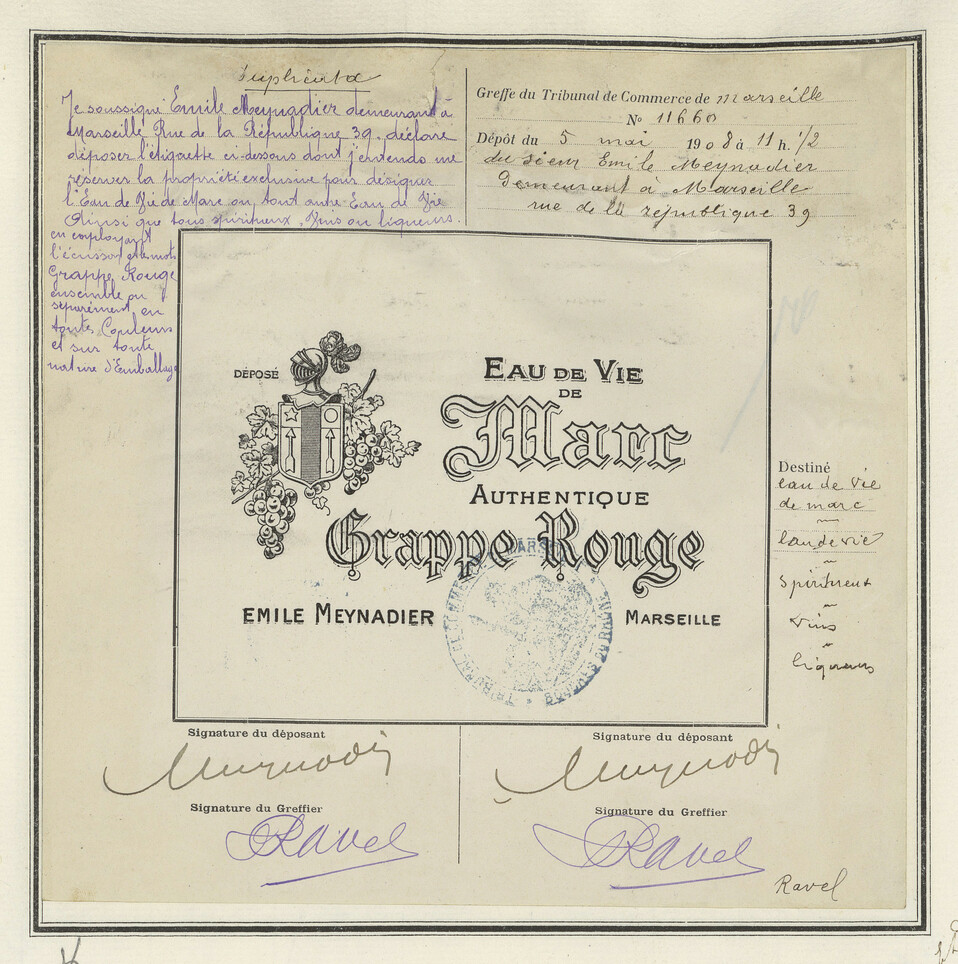 Duplicata
Je soussigné Emile Meynadier demeurant à
Marseille Rue de la République 39. déclare
déposer l'étiquette ci-dessous dont j'entends me
réserver la propriété exclusive pour désigner
l'Eau de Vie de Marc ou tout autre Eau de Vie
Ainsi que tous spiritueux, Vins ou liqueurs.
en employant
l'écusson et le mots
Grappe Rouge
ensemble ou
séparément en
toutes Couleurs
et sur toute
nature d'Emballage
Greffe du Tribunal de Commerce de Marseille
No 11660
Dépôt du 5 mai 1908 à 11 h. 1/2
du sieur Emile Meynadier
Demeurant à Marseille
rue de la république 39
DÉPOSÉ
EAU DE VIE
DE
Marc
AUTHENTIQUE
Grappe Rouge
EMILE MEYNADIER
MARSEILLE
TRIBUNAL DE COMMERCE DE MARSEILLE
BOUCHES DU RHONE
Destiné
eau de vie
de marc
eau de vie
spiritueux
vins
liqueurs
Signature du déposant
Meynadier
Signature du Greffier
Ravel
Signature du déposant
Meynadier
Signature du Greffier
Ravel
Ravel